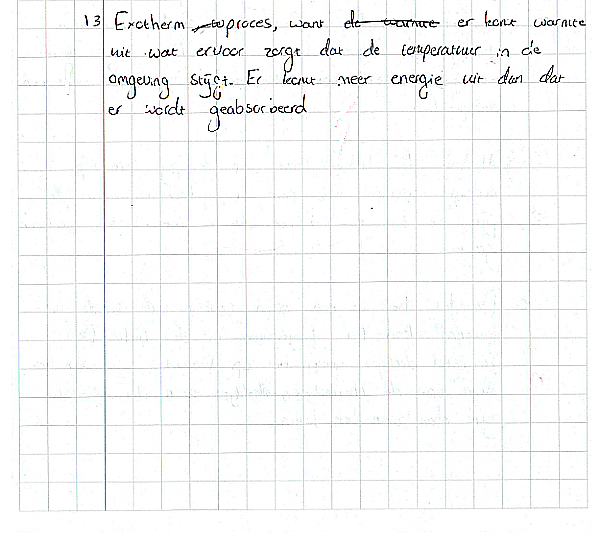 13 Exotherm proces, want er komt warmte
uit wat ervoor zorgt dat de temperatuur in de
omgeving stijgt. Er komt meer energie uit dan dat
er wordt geabsorbeerd